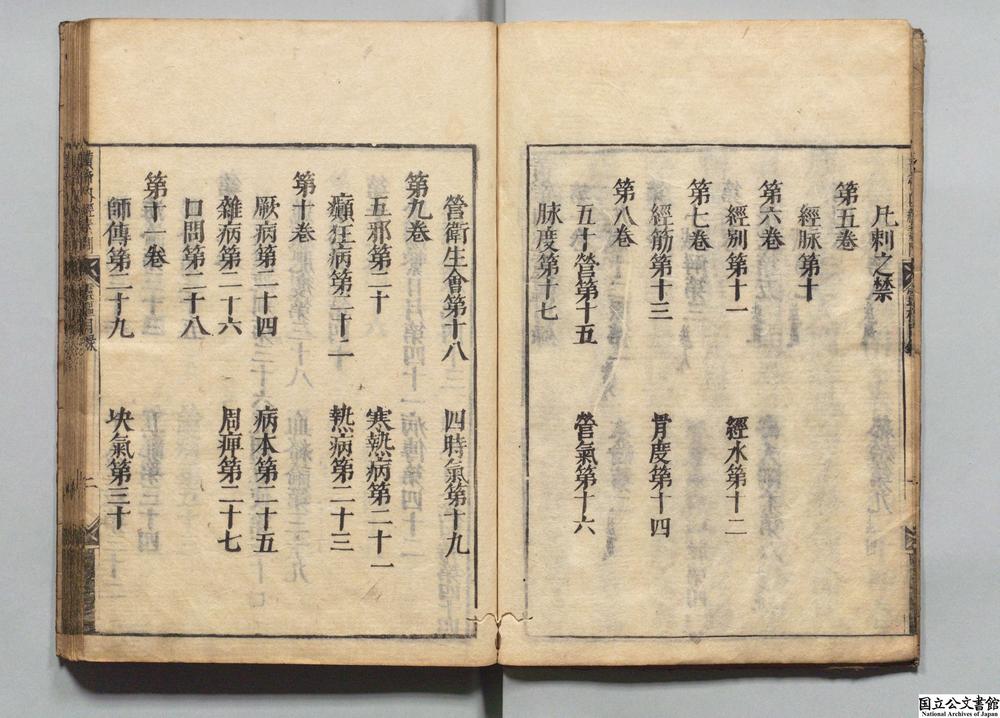 凡刺之禁
第五卷
經脉第十
第六卷
經別第十一
經水第十二
第七卷
經筋第十三
骨度第十四
第八卷
五十營第十五
營氣第十六
脉度第十七
營衛生會第十八
四時氣第十九
第九卷
五邪第二十
寒熱病第二十一
癲狂病第二十二
熱病第二十三
第十卷
厥病第二十四
病本第二十五
雜病第二十六
周痹第二十七
口問第二十八
第十一卷
師傳第二十九
决氣第三十
国立公文書館
National Archives of Japan